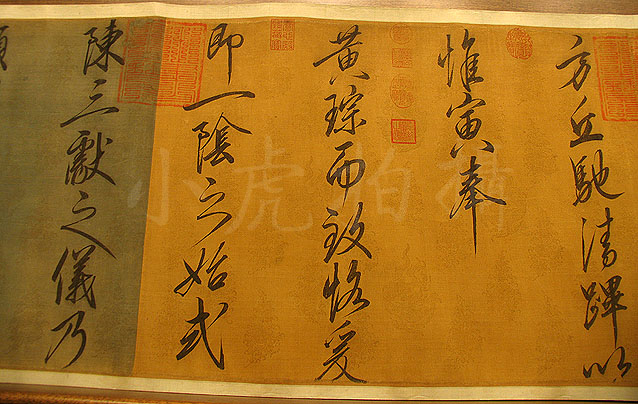 方丘馳清蹕以
惟寅奉
黃琮而致恪爰
即一陰之始式
陳三獻之儀乃
小虎拍攝